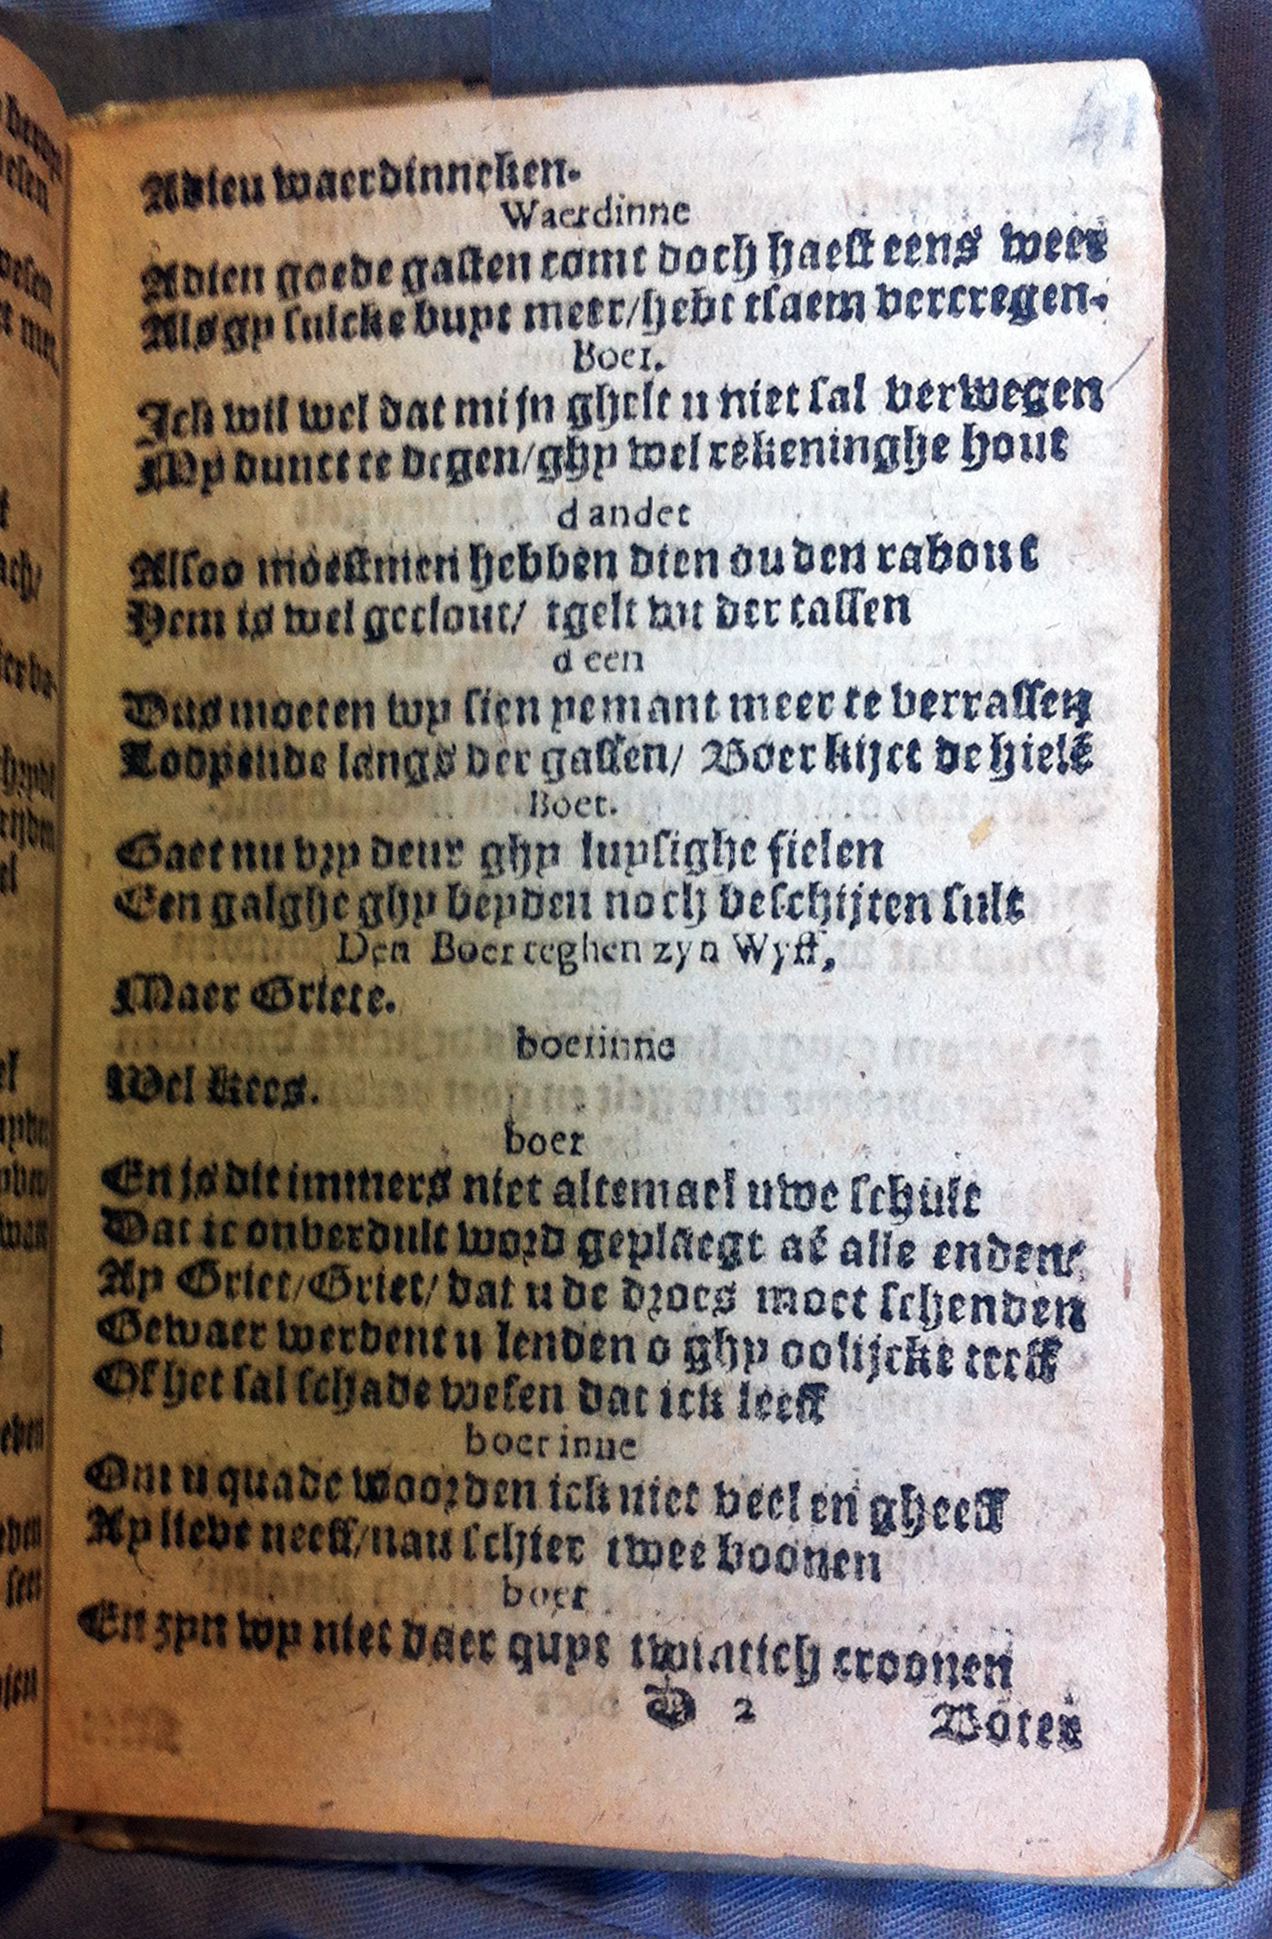 41
Adieu waerdinneken.
Waerdinne
Adieu goede gasten comt doch haest eens weer
Als gy sulcke buyt meer/hebt tsaem vercregen.
Boer.
Ick wil wel dat mijn ghelt u niet sal verwegen
My dunct te degen/ghy wel rekeninghe hout
dander
Alsoo moestmen hebben dien ouden rabout
Hem is wel geclout/ tgelt uut der tassen
deen
Dus moeten wy sien yemant meer te verrassen
Loopende langs der gassen/ Boer kijct de hielē
Boer.
Gaet nu vry deur ghy luysighe fielen
Een galghe ghy beyden noch beschijten sult
Den Boer teghen zyn Wyff,
Maer Griete.
boerinne
Wel kees.
boer
En is dit immers niet altemael uwe schult
Dat ic onverdult word geplaegt aē alle enden
Ay Griet/Griet/ dat u de droes moet schenden
Gewaer werdent u lenden o ghy oolijcke teeff
Of het sal schade wesen dat ick leeff
boerinne
Om u quade woorden ick niet veel en gheeff
Ay lieve neeff/nau schier twee boonen
boer
En zyn wy niet daer quyt twintich croonen
D 2 Boter